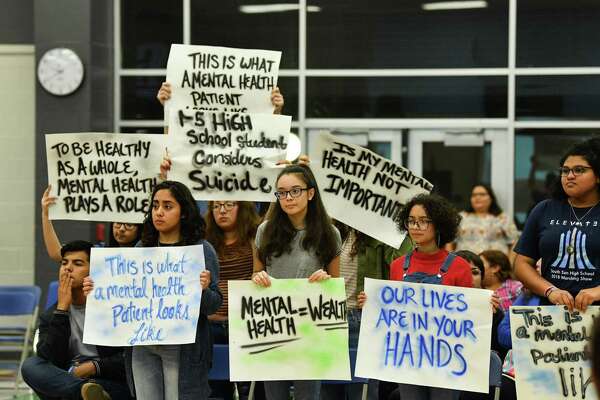 THIS IS WHAT
A MENTAL HEALTH
PATIENT
LOOKS LIKE
1-5 HIGH
School Student
Considers
Suicide
TO BE HEALTHY
AS A WHOLE,
MENTAL HEALTH
PLAYS A ROLE
IS MY MENTAL
HEALTH NOT
IMPORTANT
This is what
a mental health
Patient looks
Like
MENTAL = WEALTH
HEALTH
OUR LIVES
ARE IN YOUR
HANDS
ELEVATE
South San High School
2018 Marching Show
This is
a menta
Patient
li